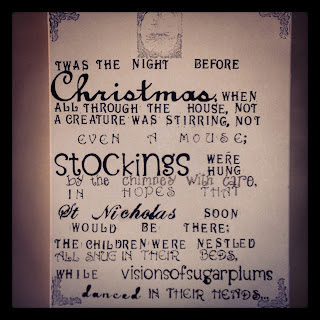 TWAS THE NIGHT BEFORE
Christmas, WHEN
ALL THROUGH THE HOUSE, NOT
A CREATURE WAS STIRRING, NOT
EVEN A MOUSE;
STOCKINGS WERE HUNG
by the chimney with care,
IN HOPES THAT
St Nicholas SOON
WOULD BE THERE;
THE CHILDREN WERE NESTLED
ALL SNUG IN THEIR BEDS,
WHILE visionsofsugarplums
danced IN THEIR HEADS...